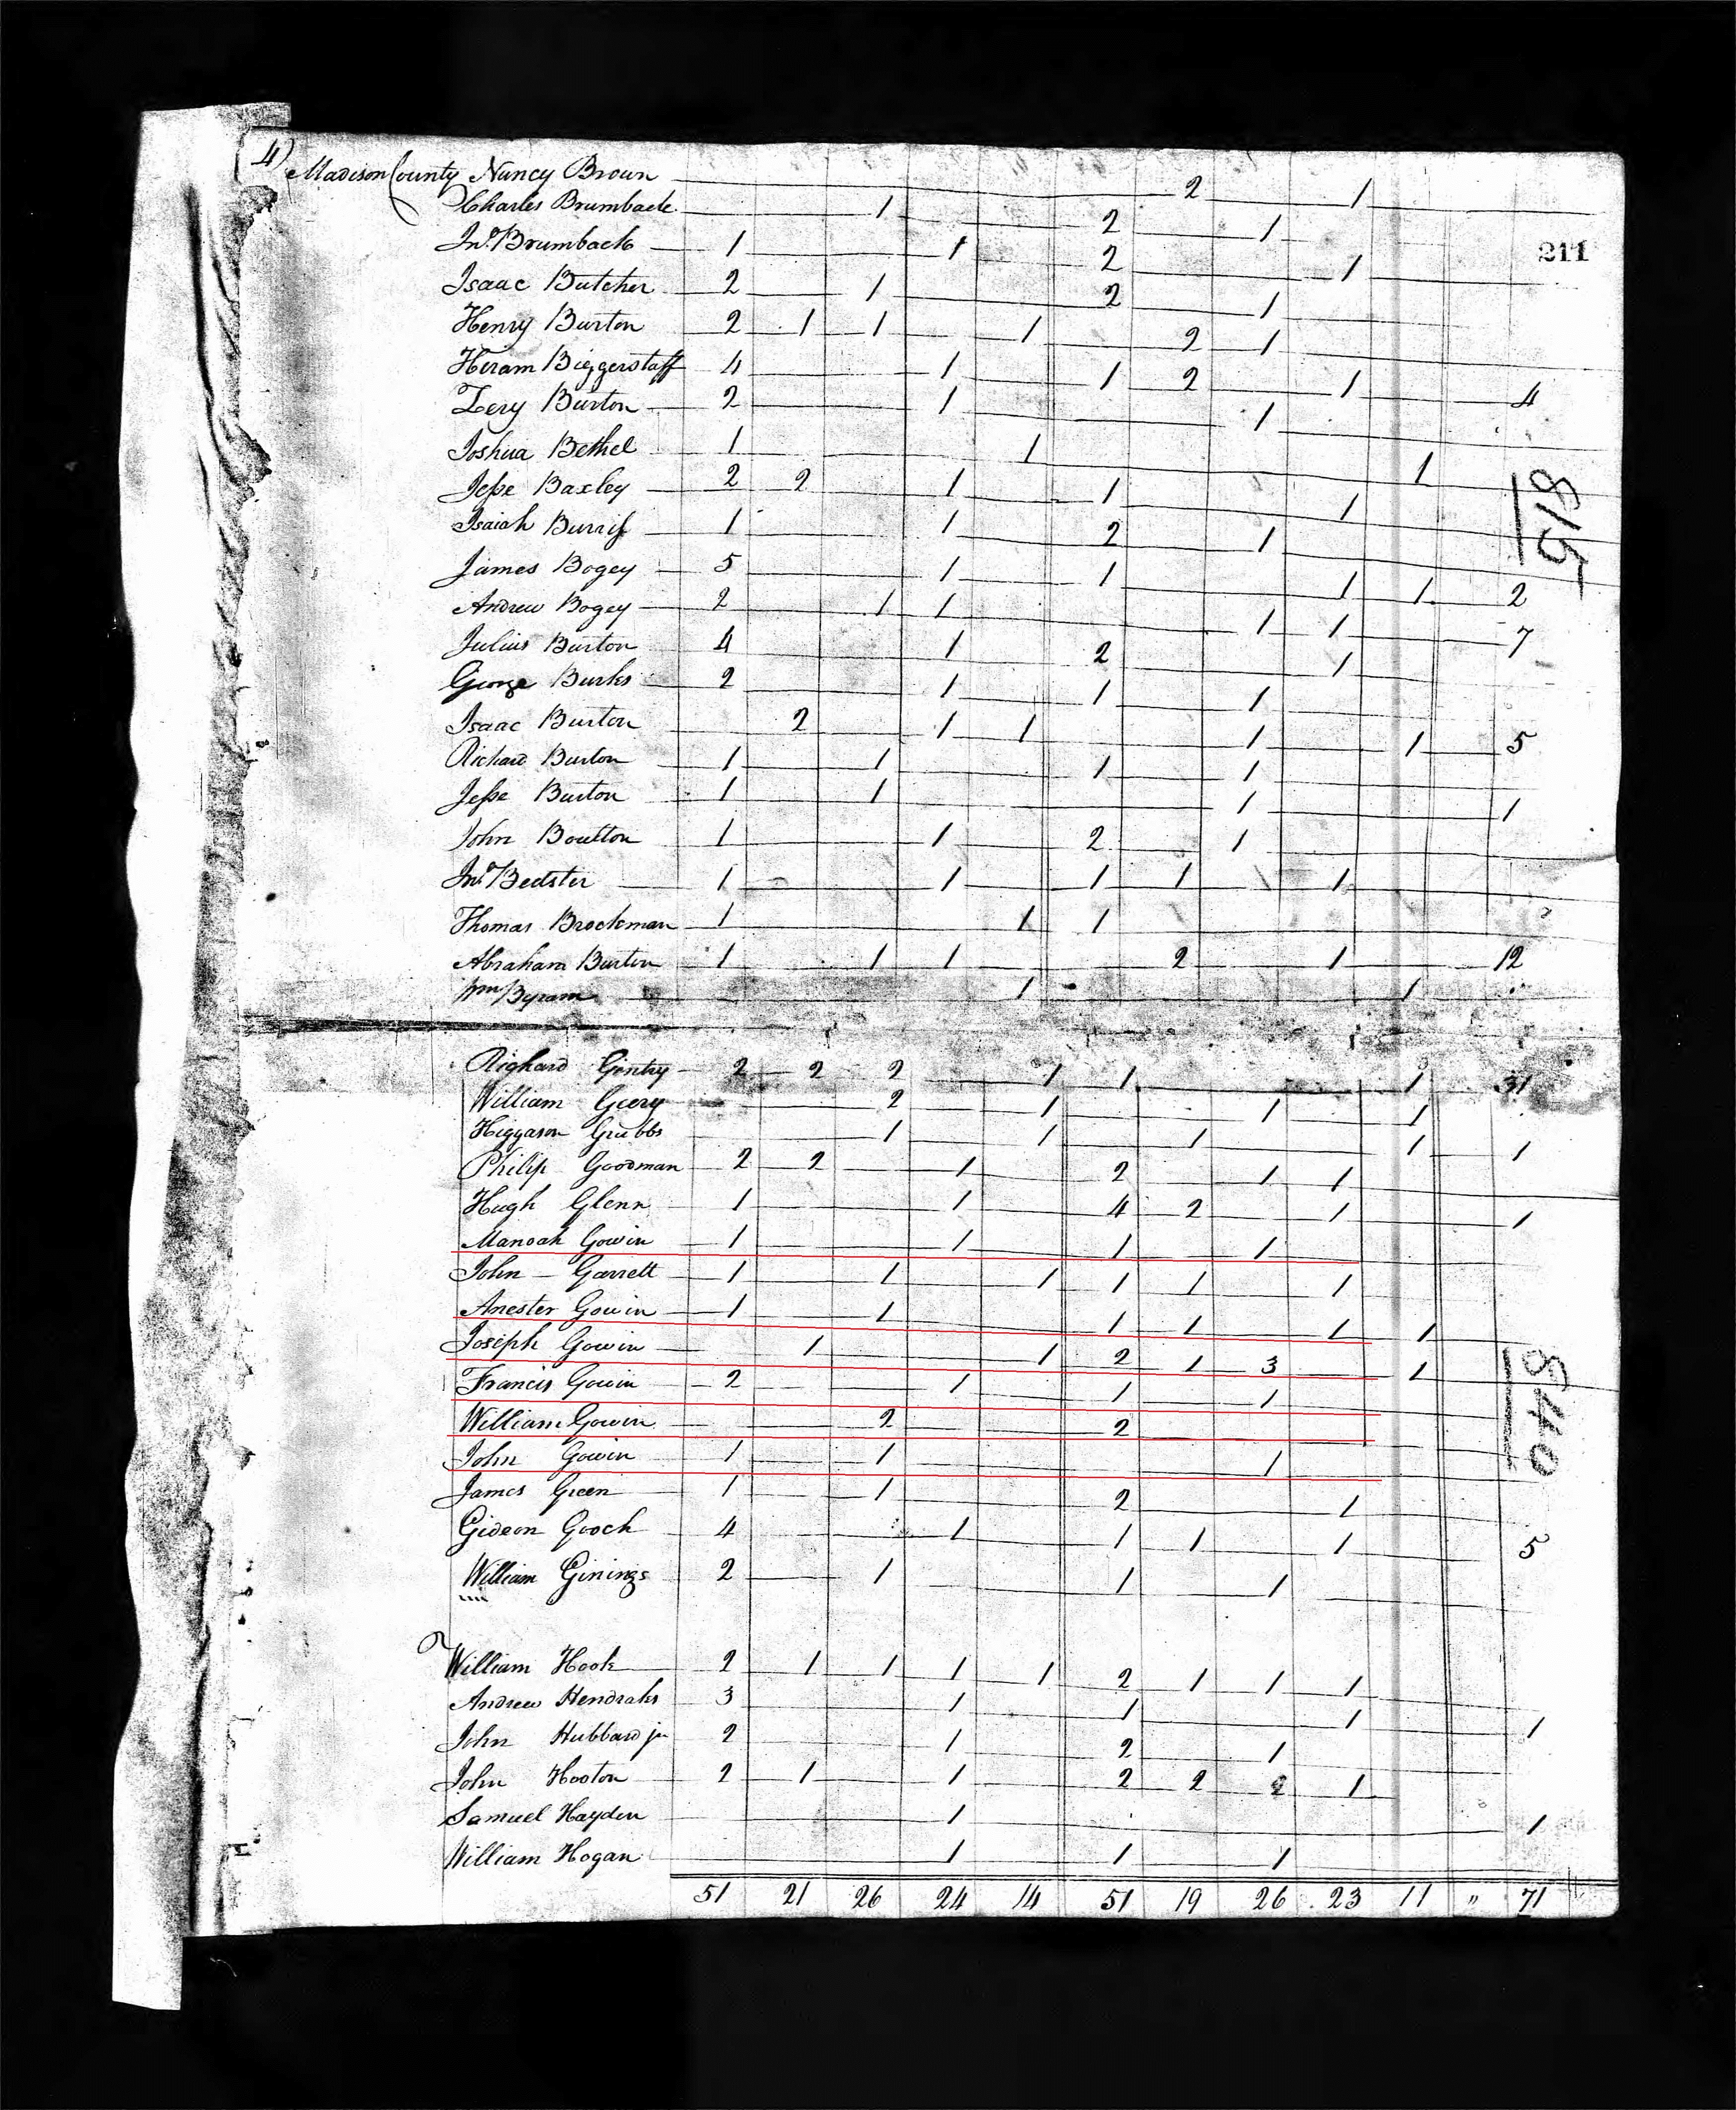 4) Madison County Nancy Brown 2 1
Charles Brumback 1 2 1
Jno. Brumback 1 1 2 1
Isaac Butcher 2 1 2 1
Henry Burton 2 1 1 1 2 1
Hiram Biggerstaff 4 1 1 2 1
Zery Burton 2 1 1 4
Joshua Bethel 1 1 1
Jesse Baxley 2 2 1 1 1
Isaiah Burris 1 1 2 1
James Bogey 5 1 1 1 1 2
Andrew Bogey 2 1 1 1 1 7
Julius Burton 4 1 2 1
George Burks 2 1 1 1
Isaac Burton 2 1 1 1 1 5
Richard Burton 1 1 1 1
Jesse Burton 1 1 1 1
John Boulton 1 1 2 1
Jno. Bedster 1 1 1 1 1
Thomas Brockman 1 1 1
Abraham Burton 1 1 1 2 1 12
Wm Byram 1 1
211
815
Righard Gentry 2 2 2 1 1 1 31
William Geery 2 1 1 1
Higgason Grubbs 1 1 1 1 1
Philip Goodman 2 2 1 2 1 1
Hugh Glenn 1 1 4 2 1 1
Manoah Gowin 1 1 1 1
John Garrett 1 1 1 1 1 1
Anester Gowin 1 1 1 1 1 1
Joseph Gowin 1 1 2 1 3 1
Francis Gowin 2 1 1 1
William Gowin 2 2
John Gowin 1 1 1
James Green 1 1 2 1
Gideon Gooch 4 1 1 1 1 5
William Ginings 2 1 1 1
840
William Hook 2 1 1 1 1 2 1 1 1
Andrew Hendraks 3 1 1 1
John Hubbard jr 2 1 2 1 1
John Hooton 2 1 1 2 2 2 1
Samuel Hayden 1 1
William Hogan 1 1 1
51 21 26 24 14 51 19 26 23 11 " 71